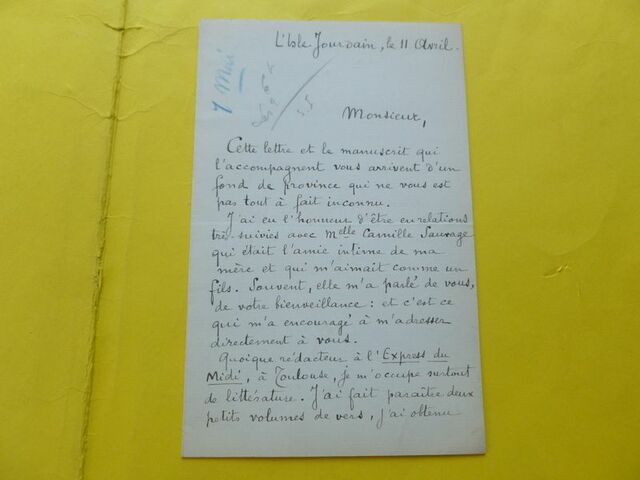 L'Isle Jourdain, le 11 Avril.
7 Mai
Monsieur,
Cette lettre et le manuscrit qui
l'accompagnent vous arrivent d'un
fond de province qui ne vous est
pas tout à fait inconnu.
J'ai eu l'honneur d'être en relations
très-suivies avec Melle Camille Sauvage
qui était l'amie intime de ma
mère et qui m'aimait comme un
fils. Souvent, elle m'a parlé de vous,
de votre bienveillance : et c'est ce
qui m'a encouragé à m'adresser
directement à vous.
Quoique rédacteur à l'Express du
Midi, à Toulouse, je m'occupe surtout
de littérature. J'ai fait paraître deux
petits volumes de vers, j'ai obtenu